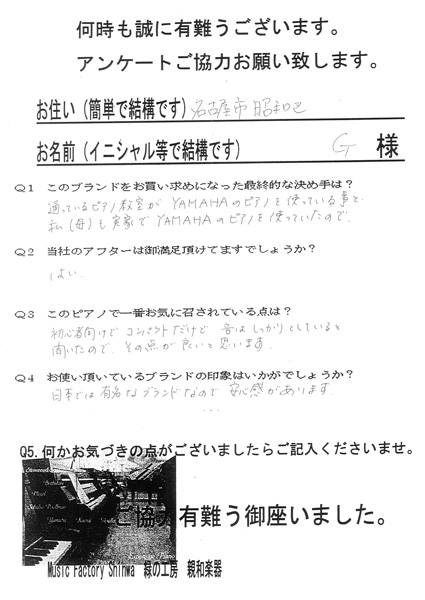 何時も誠に有難うございます。
アンケートご協力お願い致します。
お住い(簡単で結構です) 名古屋市 昭和区
お名前(イニシャル等で結構です) G 様
Q1 このブランドをお買い求めになった最終的な決め手は?
通っているピアノ教室が YAMAHAのピアノを使っている事と、
私(母)も実家でYAMAHAのピアノを使っていたので。
Q2 当社のアフターは御満足頂けてますでしょうか?
はい。
Q3 このピアノで一番お気に召されている点は?
初心者向けで コンパクトだけど 音はしっかりとしていると
聞いたので、その点が良いと思います。
Q4 お使い頂いているブランドの印象はいかがでしょうか?
日本では有名なブランドなので 安心感があります。
Q5. 何かお気づきの点がございましたらご記入くださいませ。
ご協力有難う御座いました。
Music Factory Shinwa 緑の工房 親和楽器